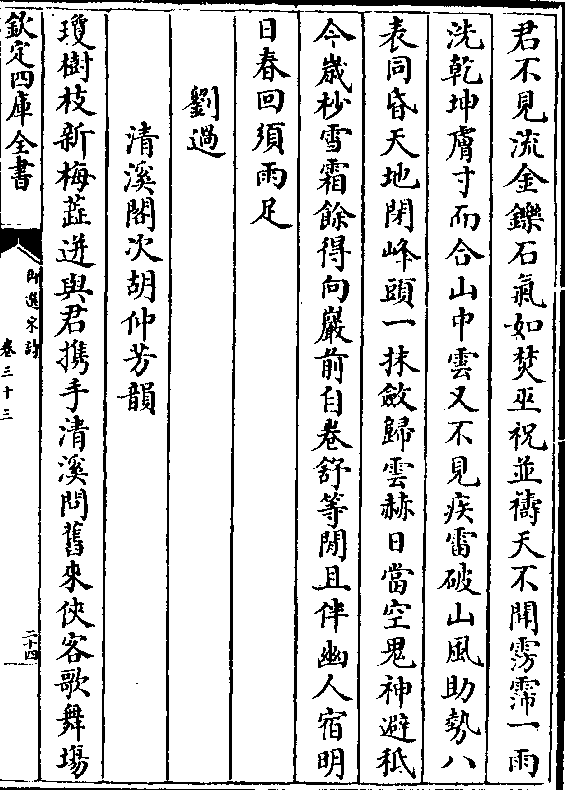 君不見流金鑠石氣如焚巫祝並禱天不聞雱霈一雨
洗乾坤膚寸而合山中雲又不見疾雷破山風助勢八
表同昏天地閉峰頭一抹斂歸雲赫日當空鬼神避秪
今歲杪雪霜餘得向巖前自卷舒等閒且伴幽人宿明
日春回須雨足
劉過
清溪閣次胡仲芳韻
瓊樹枝新梅蕋迸與君携手清溪問舊來俠客歌舞場
欽定四庫全書
御選宋詩
卷三十三
二十四